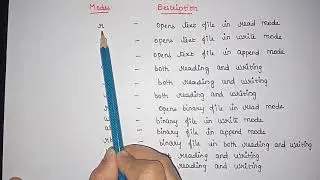 Modes Description
r - opens text file in read mode
- opens text file in write mode
- opens text file in append mode
- both reading and writing
- both reading and writing
- both reading and writing
- opens binary file in read mode
- binary file in write mode
- binary file in append mode
- binary file in both reading and writing
- reading and writing
- reading and writing